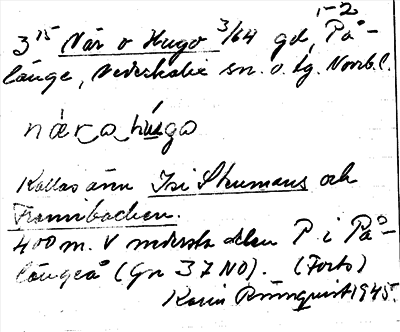 1-2
3 15 När o Hugo 3/64 gd, På-
länge, Nederkalix sn. o. tg. Norrb. l.
næra huga
Kallas även Isi Strumans och
Frambacken.
400 m. V nedersta delen P i På-
längeå (Gn 37 NO). (Forts)
Karin Rönnquist 1945.